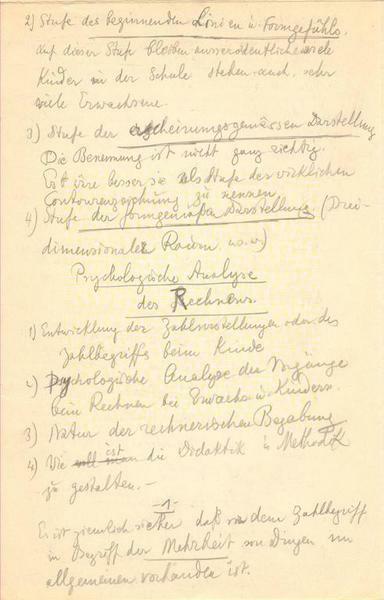 2) Stufe des beginnenden Linien u. Formgefühls,
auf dieser Stufe bleiben ausserordentliche viele
Kinder in der Schule stehen auch sehr
viele Erwachsene.
3) Stufe der erscheinungsgemässen Darstellung
Die Benennung ist nicht ganz richtig.
Es wäre besser sie als Stufe der wirklichen
Contourenzeichnung zu nennen.
4) Stufe der formgemäßen Darstellung (Drei-
dimensionaler Raum u.s.w)
Psychologische Analyse
des Rechnens.
1) Entwicklung der Zahlvorstellungen oder des
Zahlbegriffs beim Kinde
2) Psychologische Analyse der Vorgänge
beim Rechnen bei Erwachs. u. Kindern.
3) Natur der rechnerischen Begabung
4) Wie ist die Didaktik u Methodik
zu gestalten. —
1
Es ist ziemlich sicher daß vor dem Zahlbegriff
ein Begriff der Mehrheit von Dingen im
allgemeinen vorhanden ist.